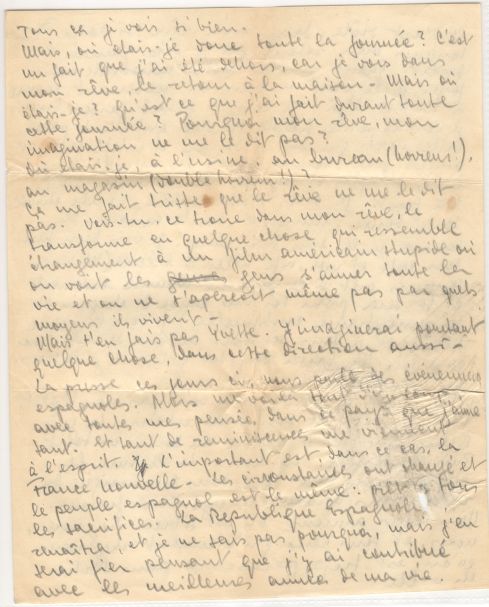 Tous ça je vois si bien.
Mais, où étais-je donc toute la journée? C'est
un fait que j'ai été dehors, car je vois dans
mon rêve, le retour à la maison - Mais où
étais-je? Qu'est ce que j'ai fait durant toute
cette journée? Pourquoi mon rêve, mon
imagination ne me le dit pas?
Où étais-je, à l'usine, au bureau (horreur!),
au magasin (double horreur!)?
Ça me fait triste que le rêve ne me le dit
pas. Vois-tu, ce trou dans mon rêve, le
transforme en quelque chose, qui ressemble
étrangement à un film américain stupide où
on voit les gens s'aimer toute la
vie et on ne s'aperçoit même pas par quels
moyens ils vivent -
Mais t'en fais pas Yvette. J'imaginerai pourtant
quelque chose, dans cette direction aussi -
La presse ces jours ci, nous parle des évènements
espagnoles. Mais me voici
avec toutes mes pensée dans ce pays que j'aime
tant. Et tant de reminiscences me viennent
à l'esprit. L'important est, dans ce cas, la
France nouvelle. Les circonstances ont changé et
le peuple espagnol est le même: prêt à tous
les sacrifices. La République Espagnole
renaîtra, et je ne sais pas pourquoi, mais j'en
serai fier pensant que j'y ai contribué
avec les meilleures années de ma vie.